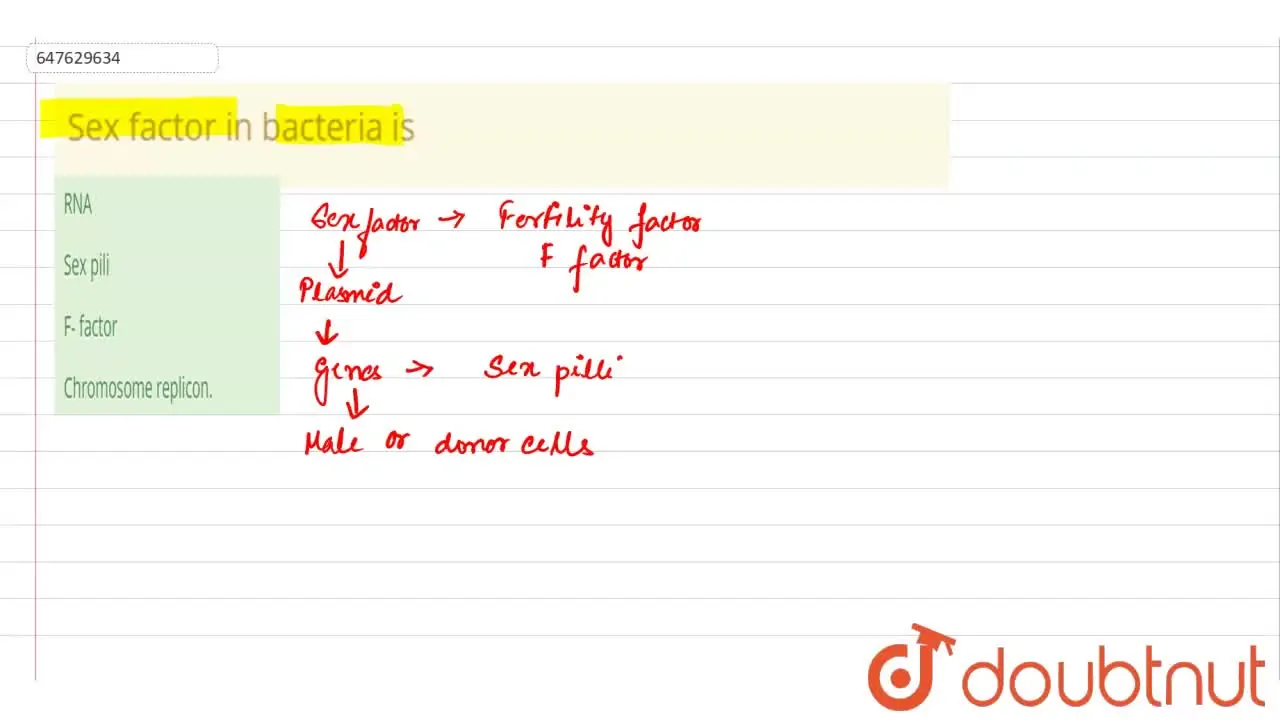 647629634
Sex factor in bacteria is
RNA
Sex pili
F- factor
Chromosome replicon.
Sex factor → Fertility factor
F factor
↓
Plasmid
↓
Genes → Sex pilli
↓
Male or donor cells
doubtnut